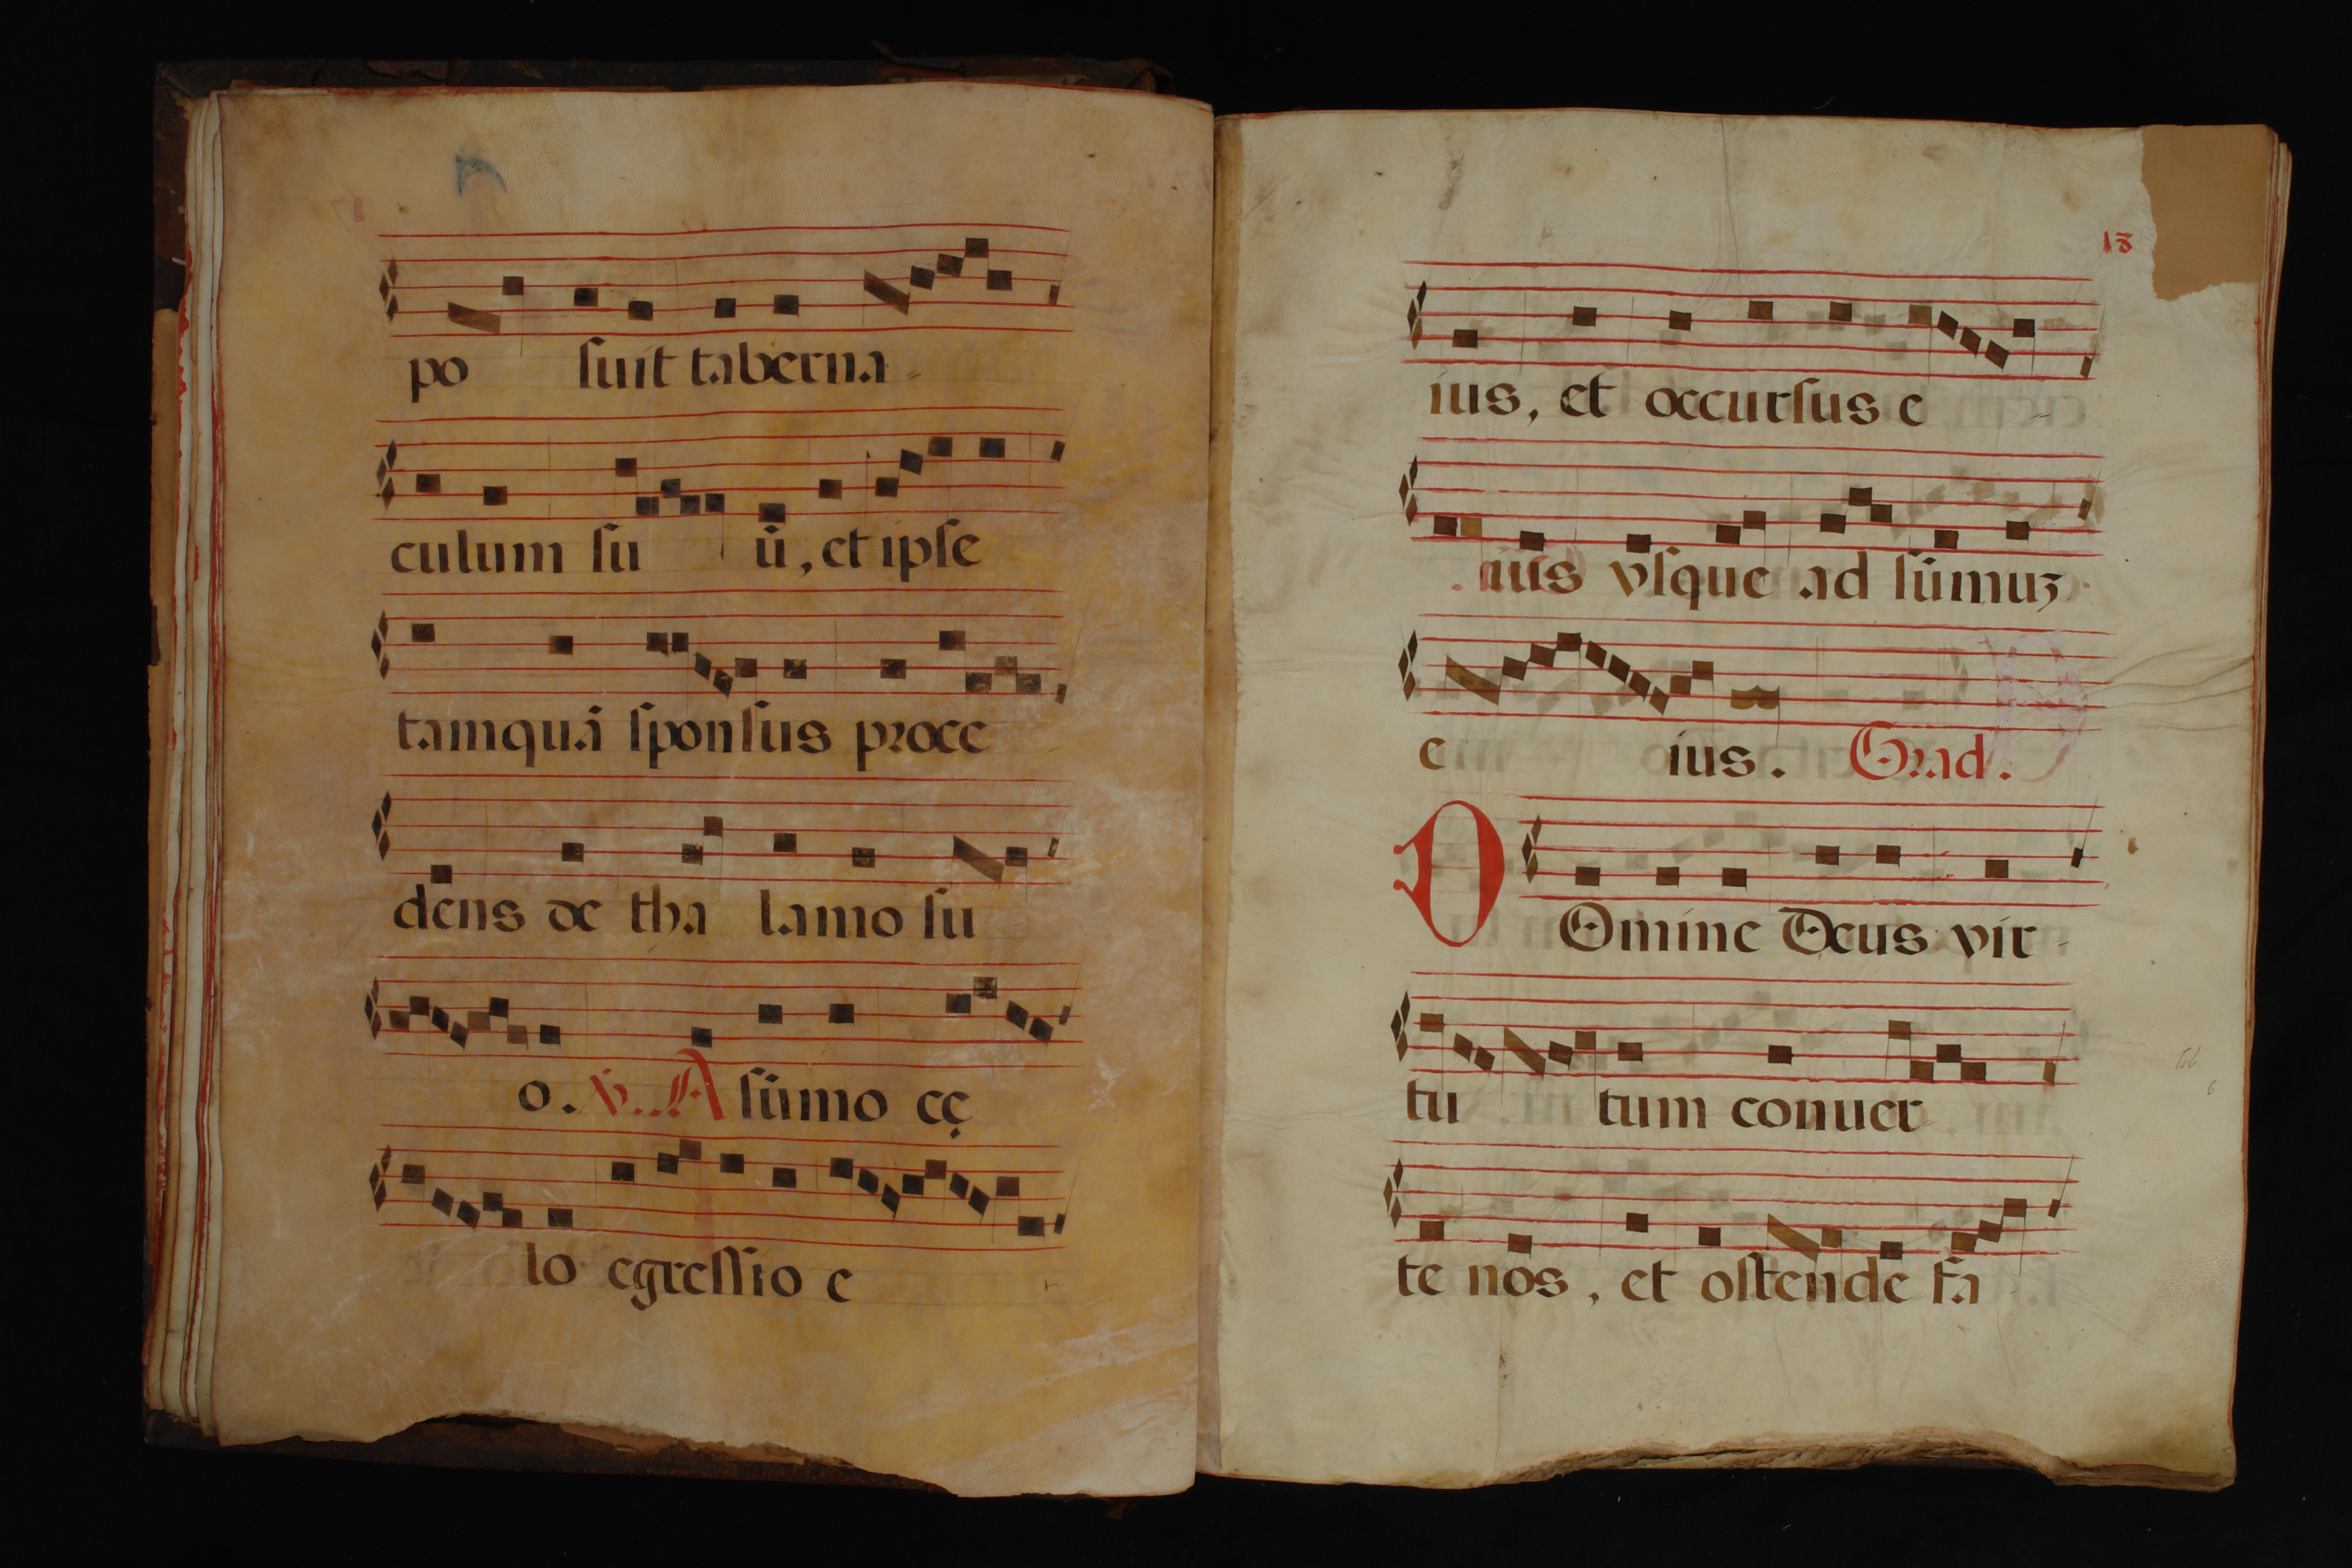 po ſuit taberna-
culum ſu ū, et ipſe
tamquā ſponſus proce
dens de tha lamo ſu
o. ꝟ. A ſūmo cę
lo egreſſio e
18
ius, et occurſus e -
ius vſque ad ſūmuʒ
e ius. Grad.
DOmine Deus vir-
tu tum conuer-
te nos, et oſtende fa